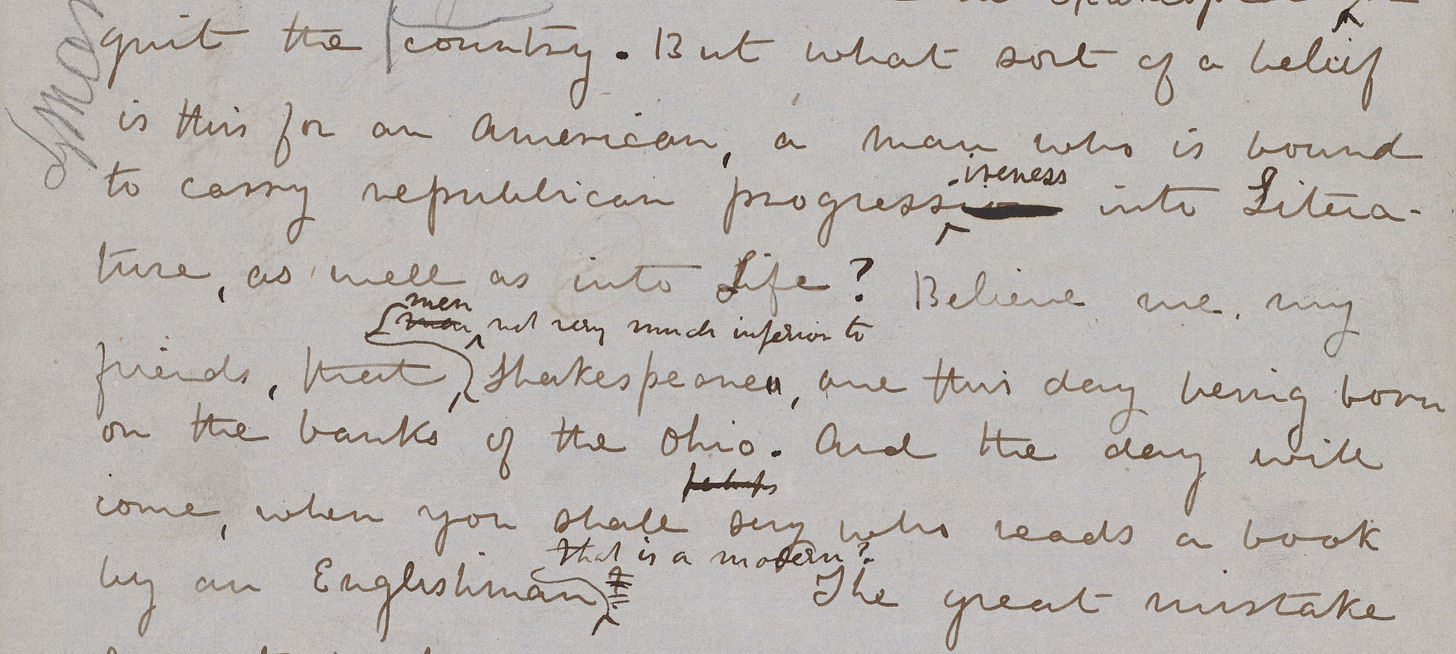 quit the country. But what sort of a belief
is this for an American, a man who is bound
iveness
to carry republican progressi into Litera-
ture, as well as into Life? Believe me, my
men
man, not very much inferior to
friends, that Shakespeares, are this day being born
on the banks of the Ohio. And the day will
perhaps
come, when you shall say who reads a book
that is a modern?
by an Englishman The great mistake